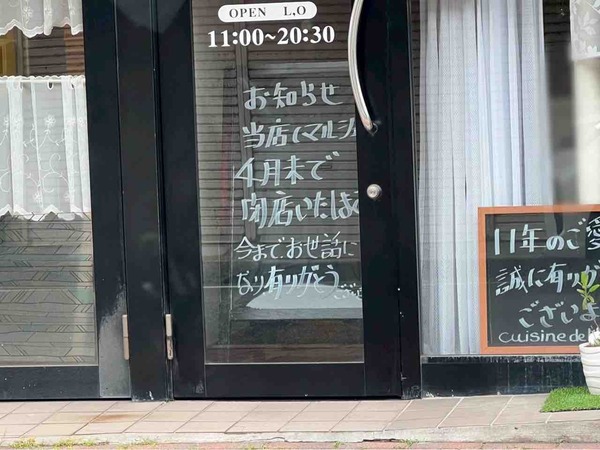 OPEN L.O
11:00~20:30
お知らせ
当店(マルシェ
4月末で
閉店いたしま
今まで、お世話に
なり有りがとう
11年のご愛
誠に有りが
ございま
cuisine de